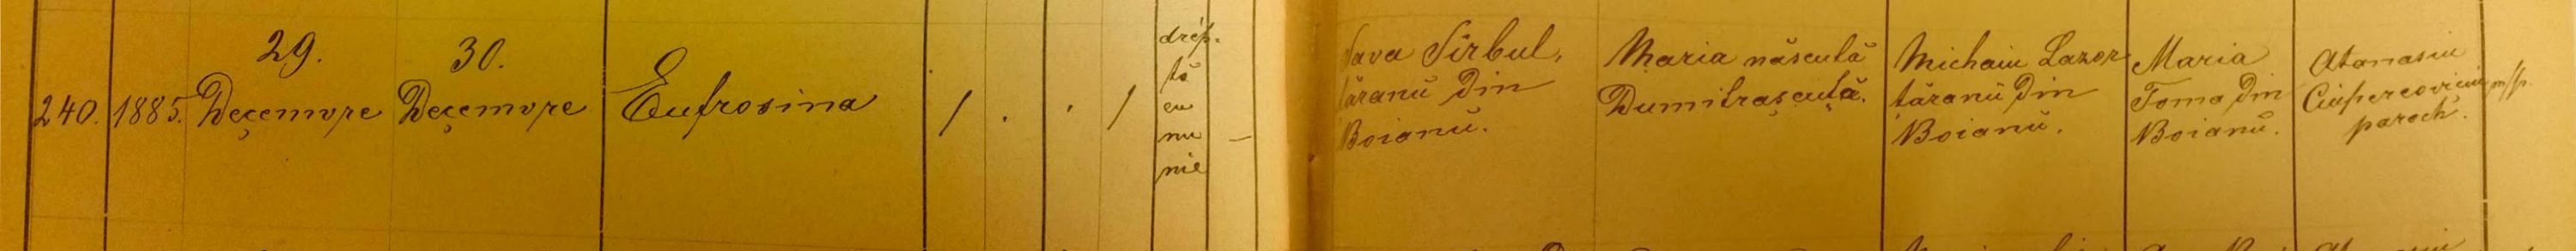 240.
1885.
29.
Deçemvre
30.
Deçemvre
Eufrosina
/ . . /
drép.
tă
cu
nu
nie
—
Sava Sîrbul,
tăranŭ din
Boianŭ.
Maria născută
Dumitraşcuţă.
Michaiu Lazor
tăranŭ din
Boianŭ.
Maria
Toma din
Boianŭ.
Atanasiu
Ciupercoviciu m/p.
paroch.